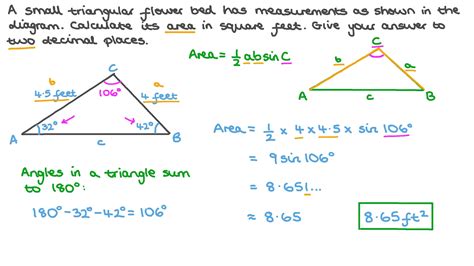 A small triangular flower bed has measurements as shown in the
diagram. Calculate its area in square feet. Give your answer to
two decimal places.
Area = 1/2 ab sin C
C
b
a
A
B
c
C
b
4.5 feet
106°
a
4 feet
32°
42°
A
c
B
Area = 1/2 × 4 × 4.5 × sin 106°
= 9 sin 106°
= 8.651...
≈ 8.65
8.65 ft²
Angles in a triangle sum
to 180°:
180° - 32° - 42° = 106°